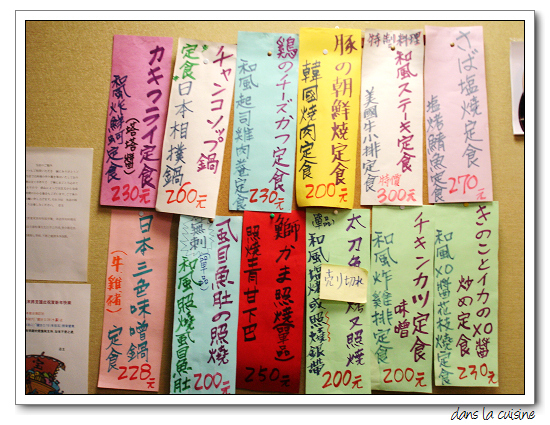 さば塩焼定食
塩烤鯖魚定食
270元
特制料理
和風ステーキ定食
美國牛小排定食
特價
300元
豚の朝鮮焼定食
韓國燒肉定食
200元
鶏のチーズカツ定食
和風起司雞肉卷定食
230元
チャンコソップ鍋
定食
日本相撲鍋
260元
カキフライ定食
(塔塔醬)
和風炸鮮蚵定食
230元
きのことイカのXO醬
炒め定食
和風XO醬花枝燒定食
230元
チキンカツ定食
味噌
和風炸雞排定食
200元
太刀魚
又照燒
売り切れ
200元
鰤かま照燒
單品
照燒青甘下巴
250元
風目魚肚の照燒
無刺
(單品)
和風照燒虱目魚肚
200元
日本三色味噌鍋
(牛雞豬)
定食
228元
dans la cuisine